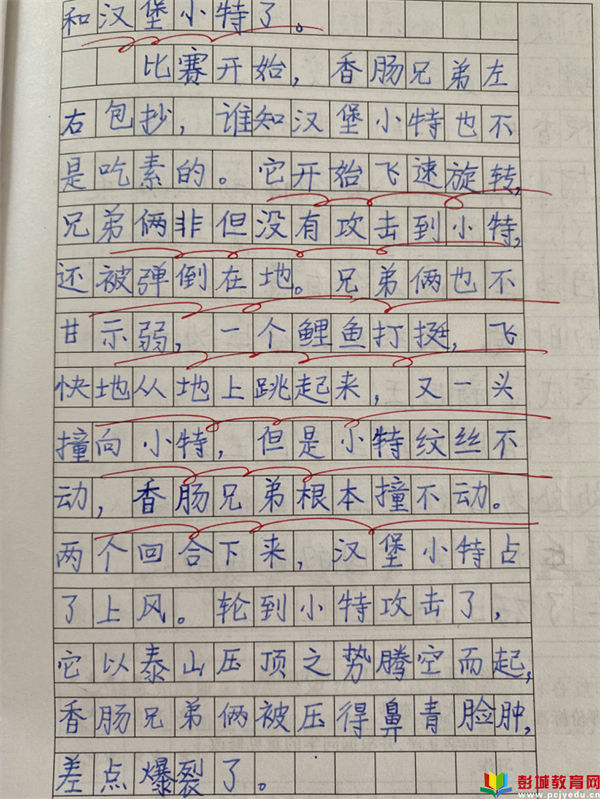 和汉堡小特了。
比赛开始，香肠兄弟左
右包抄，谁知汉堡小特也不
是吃素的。它开始飞速旋转，
兄弟俩非但没有攻击到小特，
还被弹倒在地。兄弟俩也不
甘示弱，一个鲤鱼打挺，飞
快地从地上跳起来，又一头
撞向小特，但是小特纹丝不
动，香肠兄弟根本撞不动。
两个回合下来，汉堡小特占
了上风。轮到小特攻击了，
它以泰山压顶之势腾空而起，
香肠兄弟俩被压得鼻青脸肿，
差点爆裂了。
彭城教育网
www.pcjyedu.cn